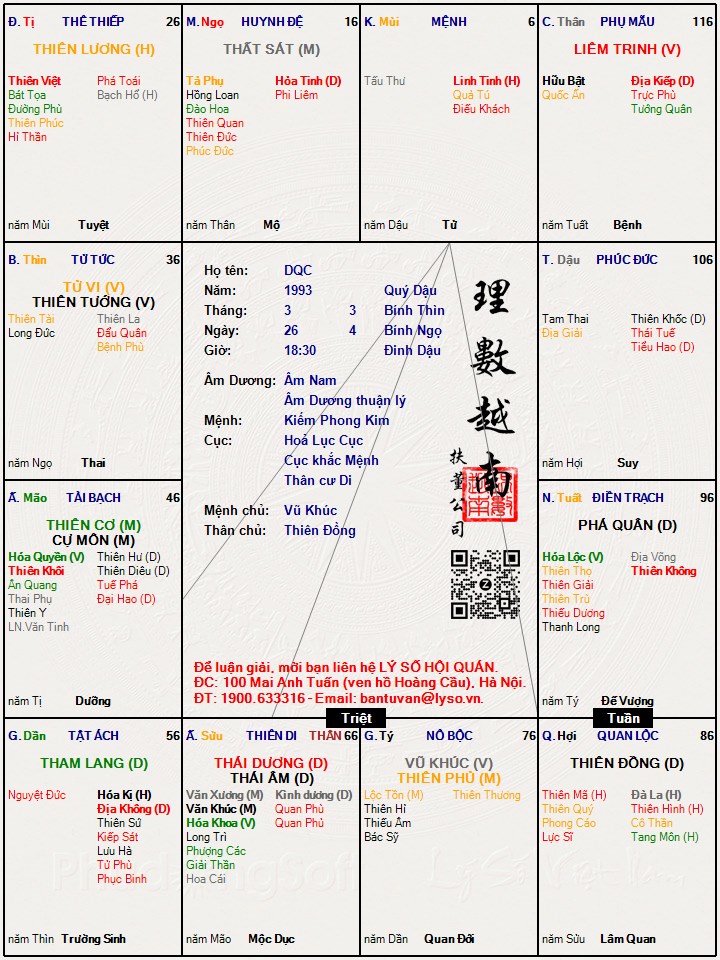 Đ. Tị THÊ THIẾP 26
THIÊN LƯƠNG (H)
Thiên Việt Phá Toái
Bát Tọa Bạch Hổ (H)
Đường Phù
Thiên Phúc
Hỉ Thần
năm Mùi Tuyệt
M. Ngọ HUYNH ĐỆ 16
THẤT SÁT (M)
Tả Phụ Hỏa Tinh (D)
Hồng Loan Phi Liêm
Đào Hoa
Thiên Quan
Thiên Đức
Phúc Đức
năm Thân Mộ
K. Mùi MỆNH 6
Tấu Thư Linh Tinh (H)
Quả Tú
Điếu Khách
năm Dậu Tử
C. Thân PHỤ MẪU 116
LIÊM TRINH (V)
Hữu Bật Địa Kiếp (D)
Quốc Ấn Trực Phù
Tướng Quân
năm Tuất Bệnh
B. Thìn TỬ TỨC 36
TỬ VI (V)
THIÊN TƯỚNG (V)
Thiên Tài Thiên La
Long Đức Đẩu Quân
Bệnh Phù
năm Ngọ Thai
Họ tên: DQC
Năm: 1993 Quý Dậu
Tháng: 3 3 Bính Thìn
Ngày: 26 4 Bính Ngọ
Giờ: 18:30 Đinh Dậu
Âm Dương: Âm Nam
Âm Dương thuận lý
Mệnh: Kiếm Phong Kim
Cục: Hoả Lục Cục
Cục khắc Mệnh
Thân cư Di
Mệnh chủ: Vũ Khúc
Thân chủ: Thiên Đồng
理數越南
扶董公司
T. Dậu PHÚC ĐỨC 106
Tam Thai Thiên Khốc (D)
Địa Giải Thái Tuế
Tiểu Hao (D)
năm Hợi Suy
Ấ. Mão TÀI BẠCH 46
THIÊN CƠ (M)
CỰ MÔN (M)
Hóa Quyền (V) Thiên Hư (D)
Thiên Khôi Thiên Diêu (D)
Ân Quang Tuế Phá
Thai Phụ Đại Hao (D)
Thiên Y
LN.Văn Tinh
năm Tị Dưỡng
N. Tuất ĐIỀN TRẠCH 96
PHÁ QUÂN (D)
Hóa Lộc (V) Địa Võng
Thiên Thọ Thiên Không
Thiên Giải
Thiên Trù
Thiếu Dương
Thanh Long
năm Tý Đế Vượng
Để luận giải, mời bạn liên hệ LÝ SỐ HỘI QUÁN.
ĐC: 100 Mai Anh Tuấn (ven hồ Hoàng Cầu), Hà Nội.
ĐT: 1900.633316 - Email: bantuvan@lyso.vn.
Triệt
Tuần
G. Dần TẬT ÁCH 56
THAM LANG (D)
Nguyệt Đức Hóa Kị (H)
Địa Không (D)
Thiên Sứ
Kiếp Sát
Lưu Hà
Tử Phù
Phục Binh
năm Thìn Trường Sinh
Ấ. Sửu THIÊN DI THÂN 66
THÁI DƯƠNG (D)
THÁI ÂM (D)
Văn Xương (M) Kình dương (D)
Văn Khúc (M) Quan Phù
Hóa Khoa (V) Quan Phủ
Long Trì
Phượng Các
Giải Thần
Hoa Cái
năm Mão Mộc Dục
G. Tý NÔ BỘC 76
VŨ KHÚC (V)
THIÊN PHỦ (M)
Lộc Tồn (M) Thiên Thương
Thiên Hỉ
Thiếu Âm
Bác Sỹ
năm Dần Quan Đới
Q. Hợi QUAN LỘC 86
THIÊN ĐỒNG (D)
Thiên Mã (H) Đà La (H)
Thiên Quý Thiên Hình (H)
Phong Cáo Cô Thần
Lực Sĩ Tang Môn (H)
năm Sửu Lâm Quan